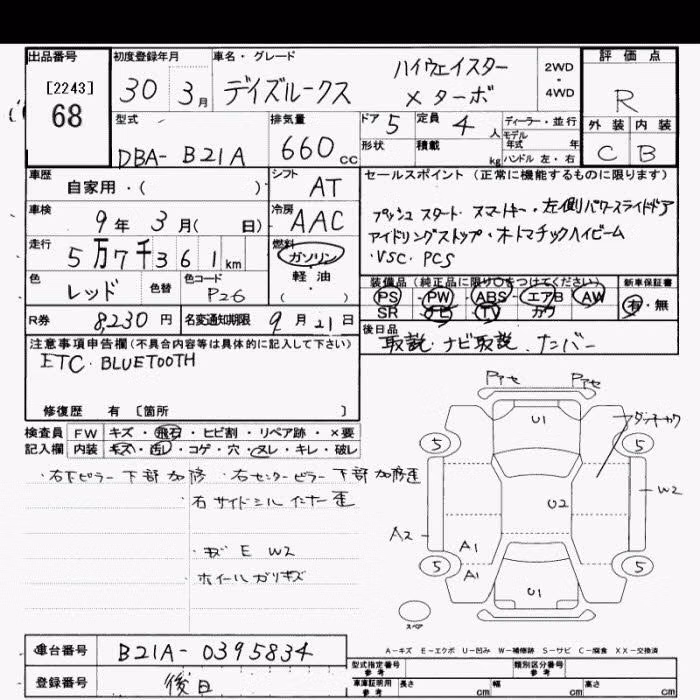 出品番号 初度登録年月 車名・グレード 評価点
[2243]
68
30 3月 デイズルークス ハイウェイスター Xターボ 2WD・4WD R
型式 排気量 ドア 5 定員 4人 ディーラー・並行 外装 内装
モデル年式 年
DBA- B21A 660cc 形状 積載 kg ハンドル 左・右 C B
車歴 シフト セールスポイント (正常に機能するものに限ります)
自家用・( ) AT
車検 冷房 プッシュスタート・スマートキー・左側パワースライドドア
9年 3月( 日) AAC アイドリングストップ・オートマチックハイビーム
走行 燃料 ・VSC・PCS
5万7千361km ガソリン
軽油・
( )
装備品(純正品に限り○をつけてください) 新車保証書
色 色替 色コード
レッド P26
PS・PW・ABS・エアB・AW 有・無
SR ナビ TV カワ
R券 8,230円 名変通知期限 9月21日 後日品
取説・ナビ取説・ナンバー
注意事項申告欄(不具合内容等は具体的に記入して下さい)
ETC・BLUETOOTH
修復歴 有 [箇所 ]
検査員 FW キズ・飛石・ヒビ割・リペア跡・×要
記入欄 内装 キズ・汚レ・コゲ・穴・スレ・キレ・破レ
・右下ピラー下部加修 ・右センターピラー下部加修歪
・右サイドシルインナー歪
・キズ E W2
ホイールガリキズ
Pアセ Pアセ
U1
アダッチカワ
5 5
U2 W2
A2
A1
5 A1 U1 5
スペア
A-キズ E-エクボ U-凹み W-補修跡 S-サビ C-腐食 XX-交換済
車台番号 B21A-0395834
型式指定番号 参考 類別区分番号 参考
登録番号 後日
車庫証明用 参考 長さ cm 幅 cm 高さ cm